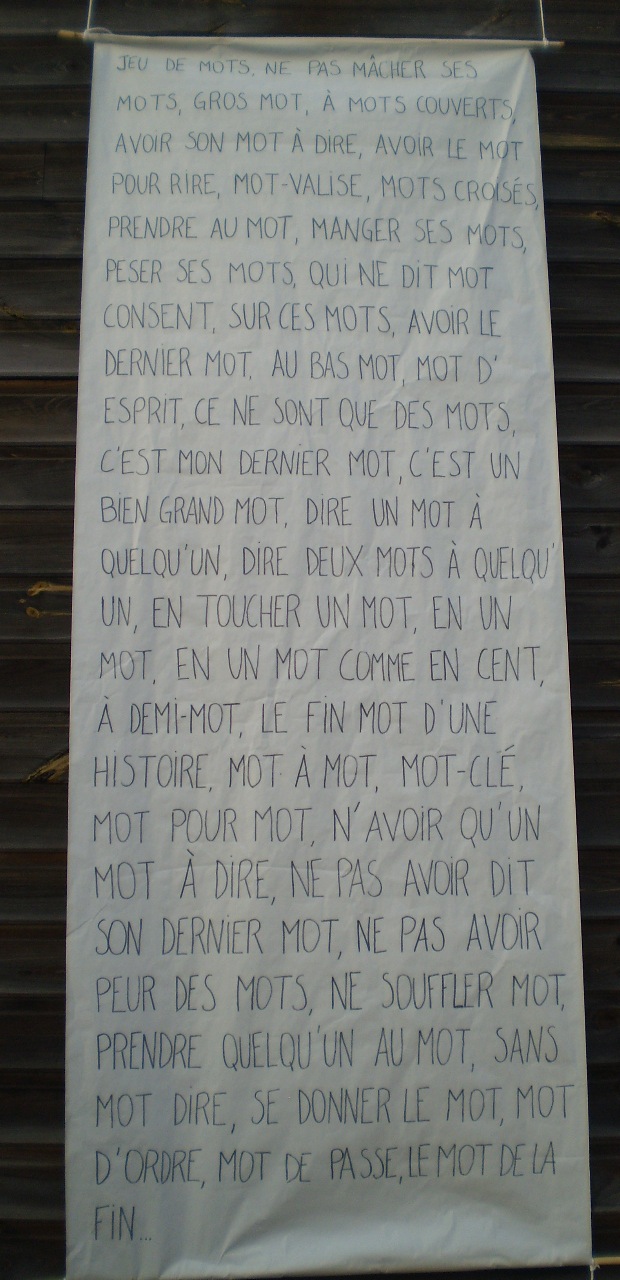 JEU DE MOTS, NE PAS MÂCHER SES
MOTS, GROS MOT, À MOTS COUVERTS,
AVOIR SON MOT À DIRE, AVOIR LE MOT
POUR RIRE, MOT-VALISE, MOTS CROISÉS,
PRENDRE AU MOT, MANGER SES MOTS,
PESER SES MOTS, QUI NE DIT MOT
CONSENT, SUR CES MOTS, AVOIR LE
DERNIER MOT, AU BAS MOT, MOT D'
ESPRIT, CE NE SONT QUE DES MOTS,
C'EST MON DERNIER MOT, C'EST UN
BIEN GRAND MOT, DIRE UN MOT À
QUELQU'UN, DIRE DEUX MOTS À QUELQU'
UN, EN TOUCHER UN MOT, EN UN
MOT, EN UN MOT COMME EN CENT,
À DEMI-MOT, LE FIN MOT D'UNE
HISTOIRE, MOT À MOT, MOT-CLÉ,
MOT POUR MOT, N'AVOIR QU'UN
MOT À DIRE, NE PAS AVOIR DIT
SON DERNIER MOT, NE PAS AVOIR
PEUR DES MOTS, NE SOUFFLER MOT,
PRENDRE QUELQU'UN AU MOT, SANS
MOT DIRE, SE DONNER LE MOT, MOT
D'ORDRE, MOT DE PASSE, LE MOT DE LA
FIN...